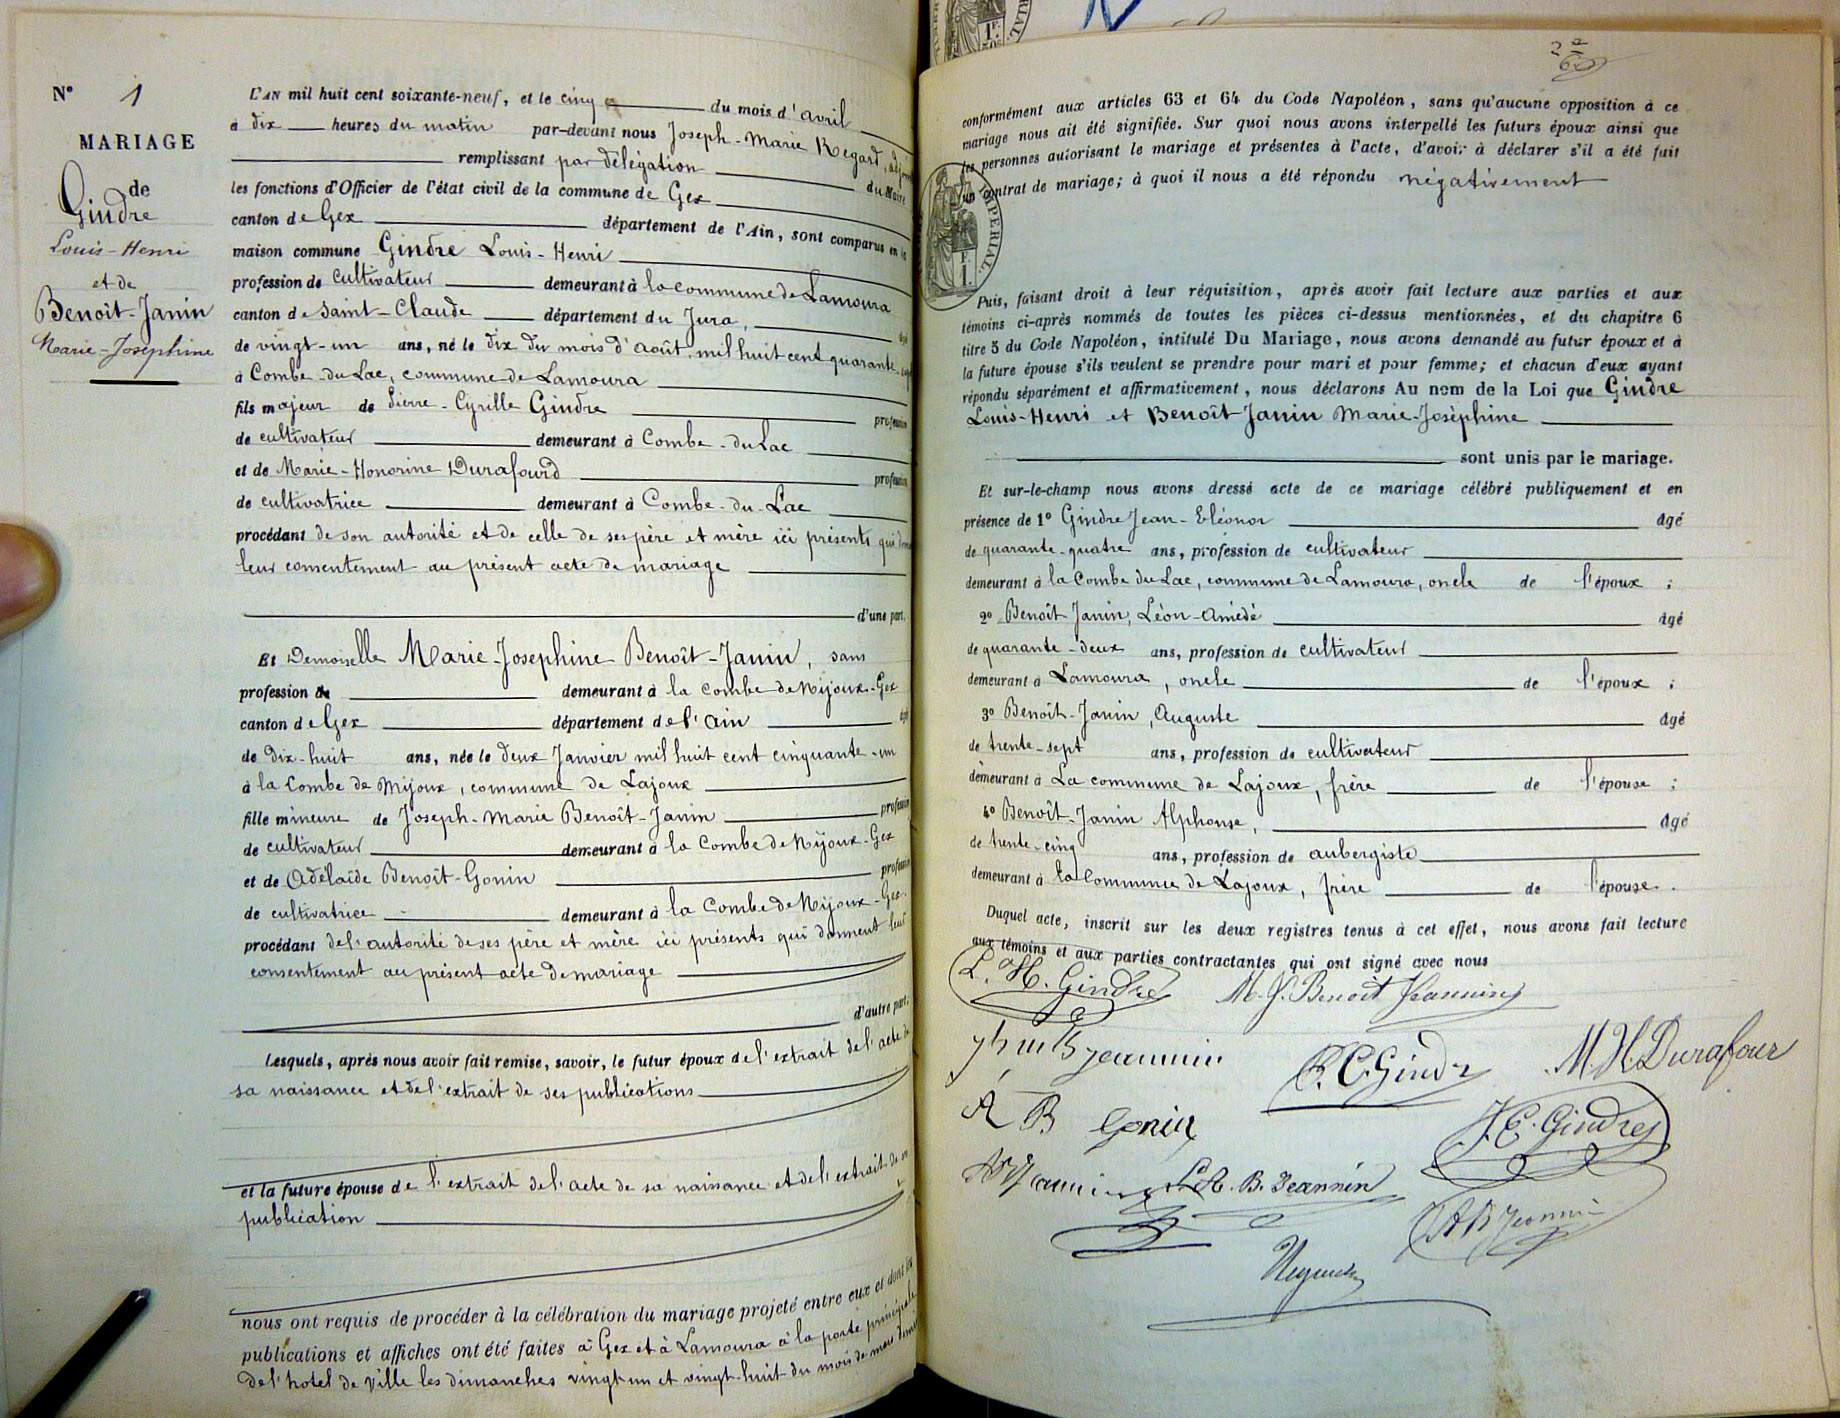 N° 1
MARIAGE
de
Gindre
Louis-Henri
et de
Benoît-Janin
Marie-Josephine
L'AN mil huit cent soixante-neuf, et le cinq du mois d'avril
à dix heures du matin par-devant nous Joseph-Marie Regard, adjoint
remplissant par délégation du Maire
les fonctions d'Officier de l'état civil de la commune de Gex
canton de Gex département de l'Ain, sont comparus en la
maison commune Gindre Louis-Henri
profession de cultivateur demeurant à la commune de Lamoura
canton de Saint-Claude département du Jura, âgé
de vingt-un ans, né le dix du mois d'août mil huit cent quarante-sept
à Combe-du-Lac, commune de Lamoura
fils majeur de Pierre-Cyrille Gindre profession
de cultivateur demeurant à Combe-du Lac
et de Marie-Honorine Durafourd profession
de cultivatrice demeurant à Combe-du-Lac
procédant de son autorité et de celle de ses père et mère ici présents qui donnent
leur consentement au présent acte de mariage
d'une part.
Et Demoiselle Marie-Josephine Benoît-Janin, sans
profession de demeurant à la combe de Mijoux-Gex
canton de Gex département de l'Ain âgée
de dix-huit ans, née le deux Janvier mil huit cent cinquante-un
à la Combe de Mijoux, commune de Lajoux
fille mineure de Joseph-Marie Benoît-Janin profession
de cultivateur demeurant à la Combe de Mijoux-Gex
et de Adélaïde Benoît-Gonin profession
de cultivatrice demeurant à la Combe de Mijoux-Gex
procédant de l'autorité de ses père et mère ici présents qui donnent leur
consentement au présent acte de mariage
d'autre part.
Lesquels, après nous avoir fait remise, savoir, le futur époux de l'extrait de l'acte de
sa naissance et de l'extrait de ses publications
et la future épouse de l'extrait de l'acte de sa naissance et de l'extrait de sa
publication
nous ont requis de procéder à la célébration du mariage projeté entre eux et dont les
publications et affiches ont été faites à Gex et à Lamoura à la porte principale
de l'hotel de ville les dimanches vingt-un et vingt-huit du mois de mars dernier
conformément aux articles 63 et 64 du Code Napoléon, sans qu'aucune opposition à ce
mariage nous ait été signifiée. Sur quoi nous avons interpellé les futurs époux ainsi que
les personnes autorisant le mariage et présentes à l'acte, d'avoir à déclarer s'il a été fait
un contrat de mariage; à quoi il nous a été répondu négativement
IMPERIAL
Puis, faisant droit à leur réquisition, après avoir fait lecture aux parties et aux
témoins ci-après nommés de toutes les pièces ci-dessus mentionnées, et du chapitre 6
titre 5 du Code Napoléon, intitulé Du Mariage, nous avons demandé au futur époux et à
la future épouse s'ils veulent se prendre pour mari et pour femme; et chacun d'eux ayant
répondu séparément et affirmativement, nous déclarons Au nom de la Loi que Gindre
Louis-Henri et Benoît Janin Marie-Josèphine
sont unis par le mariage.
Et sur-le-champ nous avons dressé acte de ce mariage célébré publiquement et en
présence de 1° Gindre Jean-Eléonor âgé
de quarante-quatre ans, profession de cultivateur
demeurant à la Combe du Lac, commune de Lamoura, oncle de l'époux ;
2° Benoît Janin, Léon-Amédé âgé
de quarante-deux ans, profession de cultivateur
demeurant à Lamoura, oncle de l'époux ;
3° Benoît-Janin, Auguste âgé
de trente-sept ans, profession de cultivateur
demeurant à La commune de Lajoux, frère de l'épouse ;
4° Benoît-Janin Alphonse, âgé
de trente-cinq ans, profession de aubergiste
demeurant à la Commune de Lajoux, frère de l'épouse.
Duquel acte, inscrit sur les deux registres tenus à cet effet, nous avons fait lecture
aux témoins et aux parties contractantes qui ont signé avec nous
L. H. Gindre M. J. Benoit Jeannin
jh m B jeannin P. C. Gindre M H Durafour
A B gonin J. E. Gindre
L. A. B. Jeannin
A B Jeannin